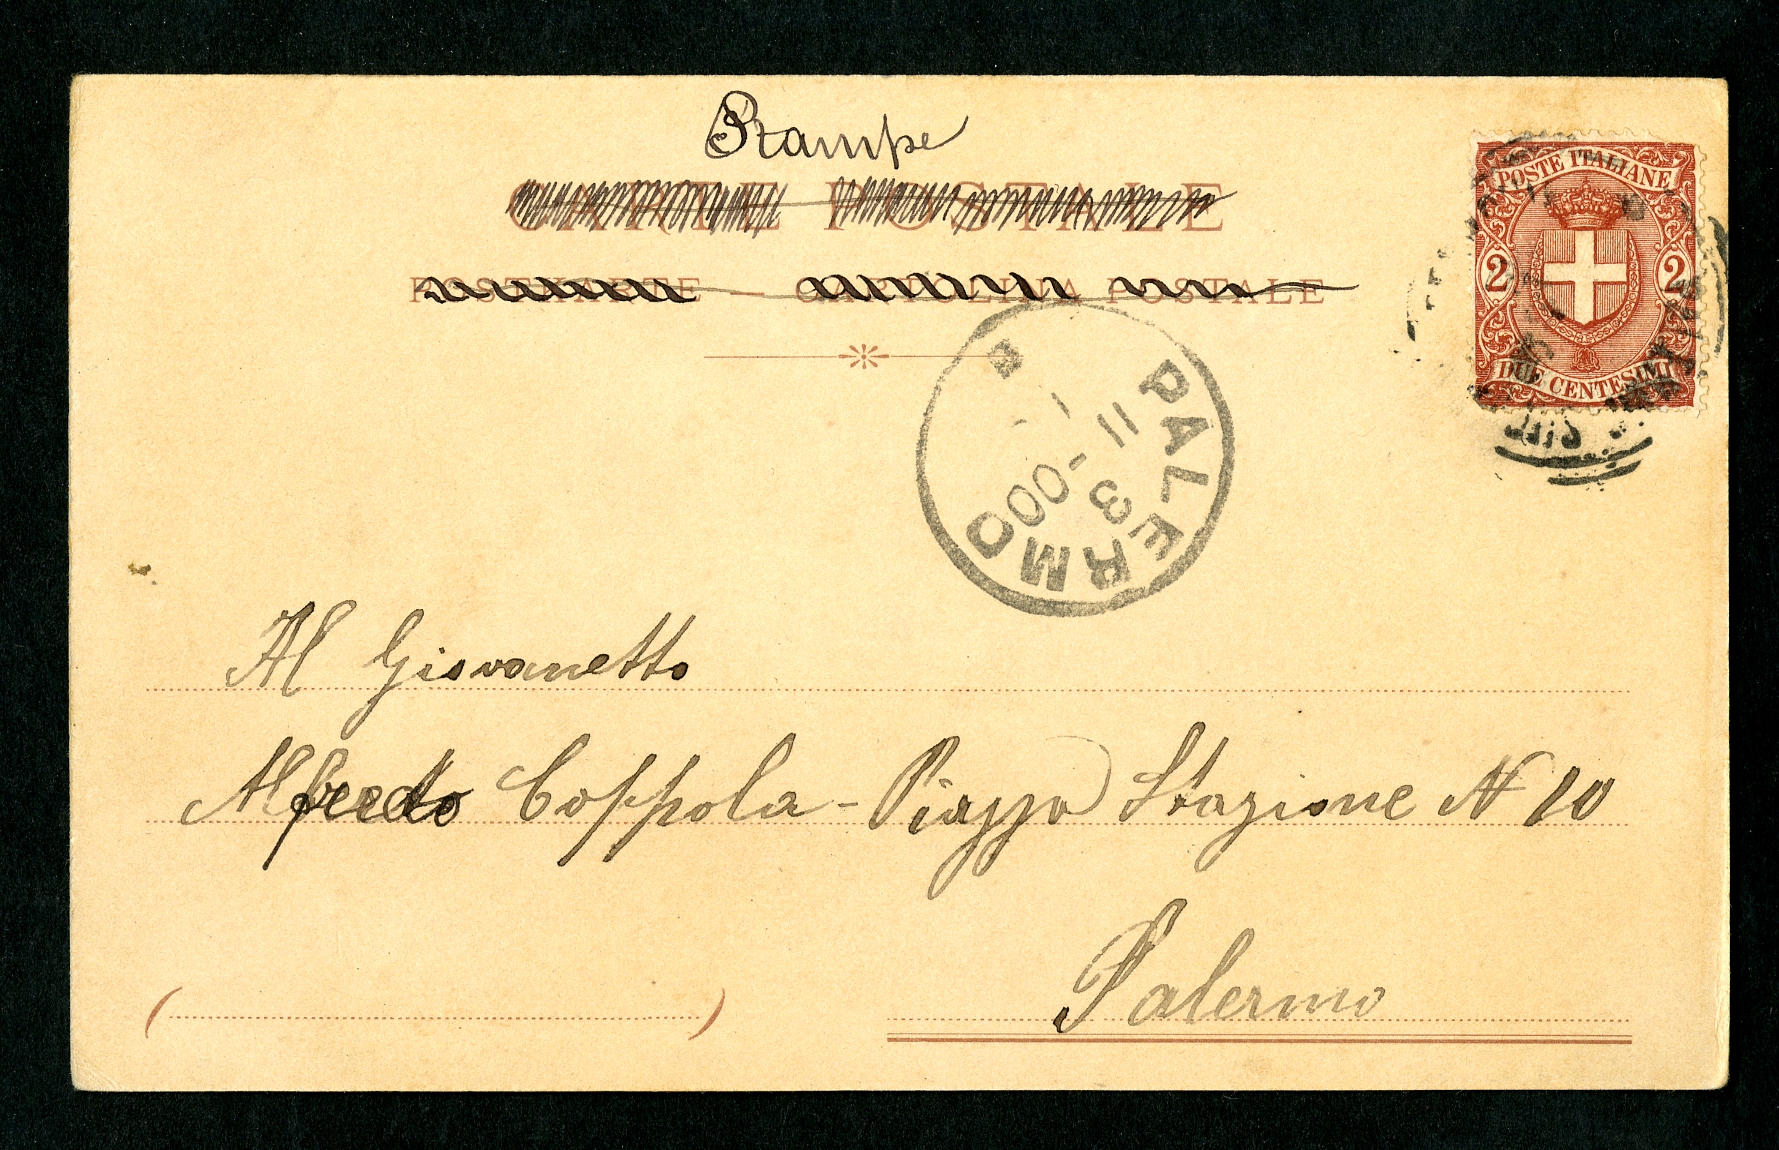 Stampe
CARTE POSTALE
POSTKARTE — CARTOLINA POSTALE
POSTE ITALIANE
2 2
DUE CENTESIMI
PALERMO
11 - 3
00
Al Giovanetto
Alfredo Coppola - Piazza Stazione N 10
Palermo
( )